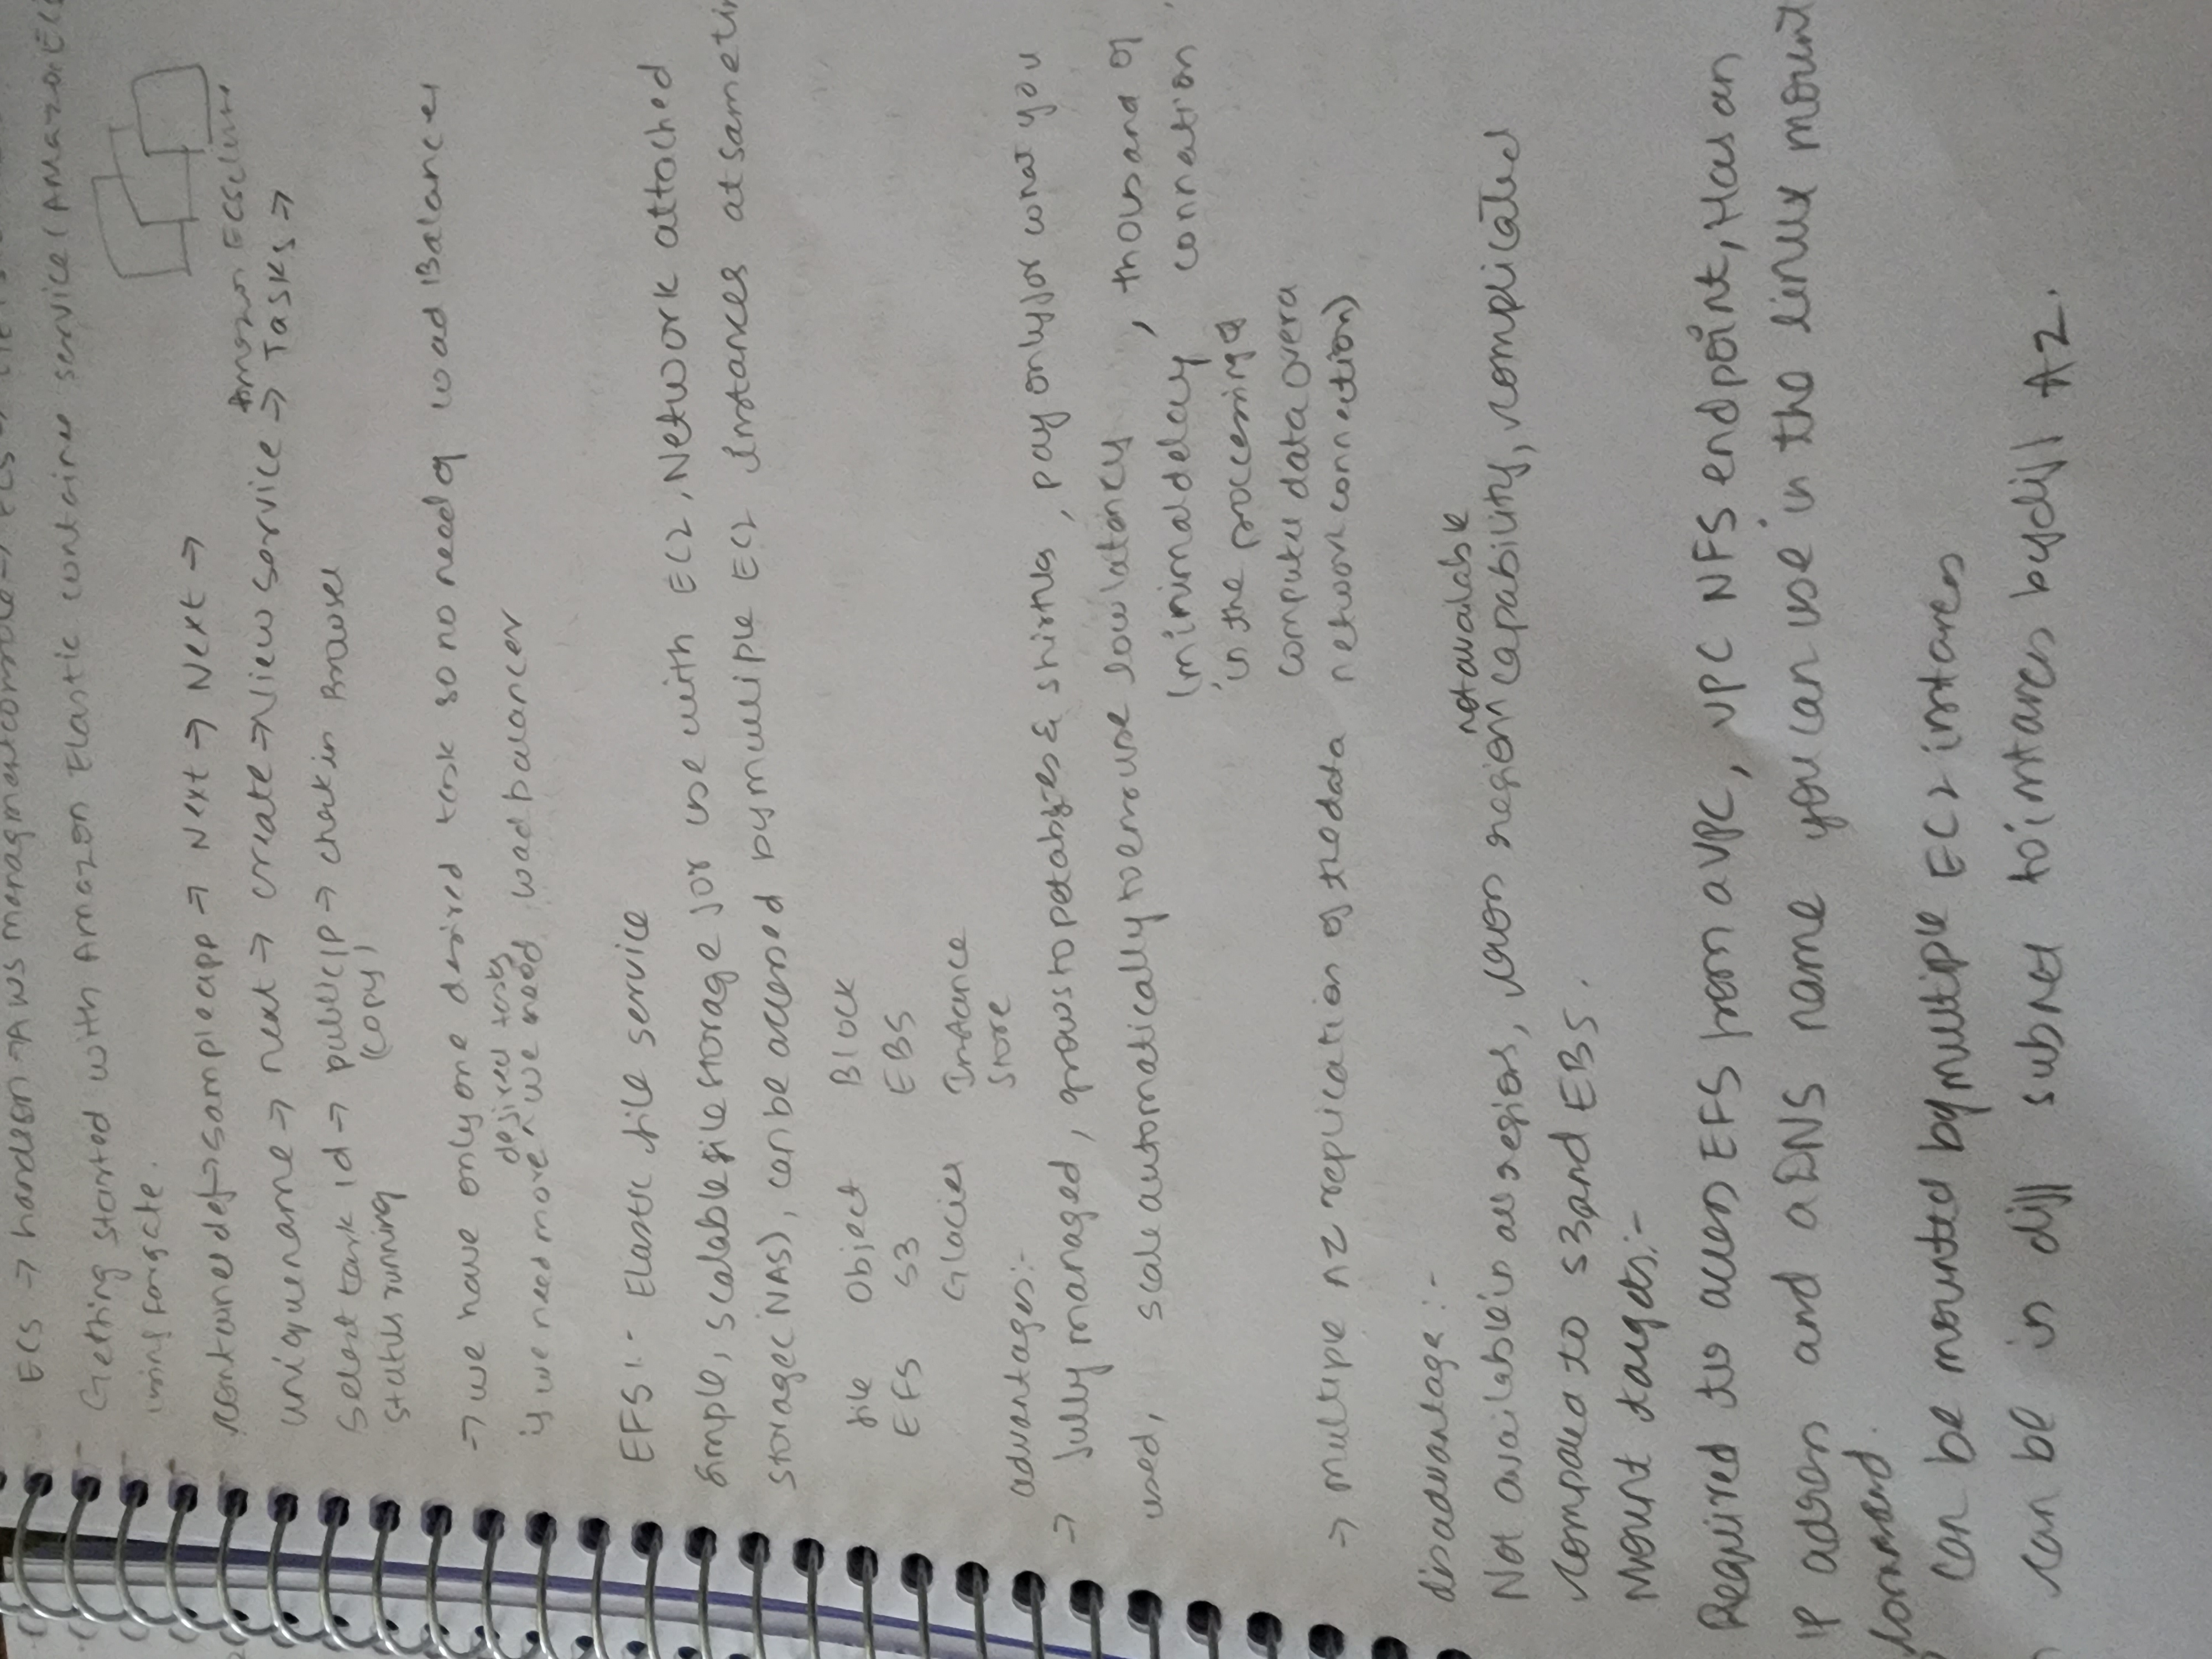 ECS → handson → AWS managmentconsole → ECS →
Getting started with Amazon Elastic container service (Amazon ECS
using Fargate.
container def → sampleapp → Next → Next →
Amazon ECS cluster
uniquename → next → create → View service → Tasks →
Select task id → public IP → check in Browser
status running (copy)
→ we have only one desired task so no need of Load Balancer
desired tasks
if we need more ^ we need load balancer
EFS :- Elastic file service
Simple, scalable file storage for use with EC2, Network attached
storage (NAS), can be accessed by multiple EC2 instances at same
file Object Block
EFS S3 EBS
Glacier Instance
Store
advantages:-
→ fully managed, grows to petabytes & shirnks, pay only for what you
used, scale automatically to ensure low latency, thousand of
(minimal delay connection
in the proccessing of
computer data over a
→ Multiple AZ replication of the data network connection)
disadvantage :-
not available
Not available in all regions, cross region ^ capability, complicated
compared to S3 and EBS.
Mount targets:-
Required to access EFS from a VPC, VPC NFS endpoint, Has an
IP adress and a DNS name you can use in the linux mount
command.
can be mounted by multiple EC2 instances
can be in diff subnet to instances by diff AZ.